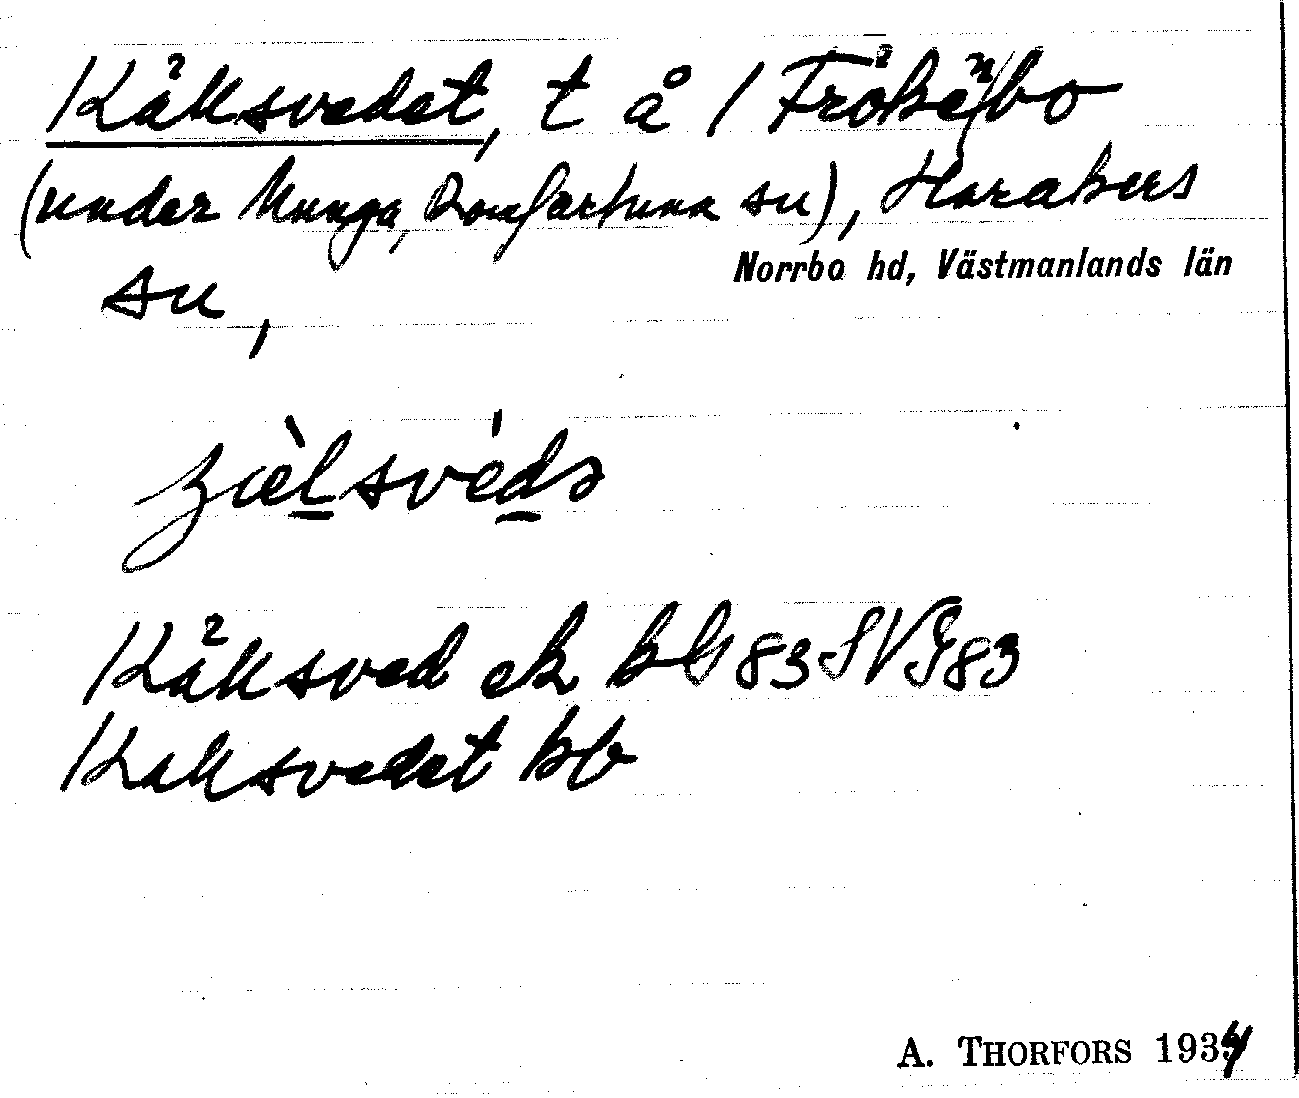 Källsvedet, t å / Fröke(n)bo
(under Munga, Romfartuna sn), Harakers
Norrbo hd, Västmanlands län
sn,
Källsved ek kb 83 SVG 83
Kallsvedet kb
A. THORFORS 1934